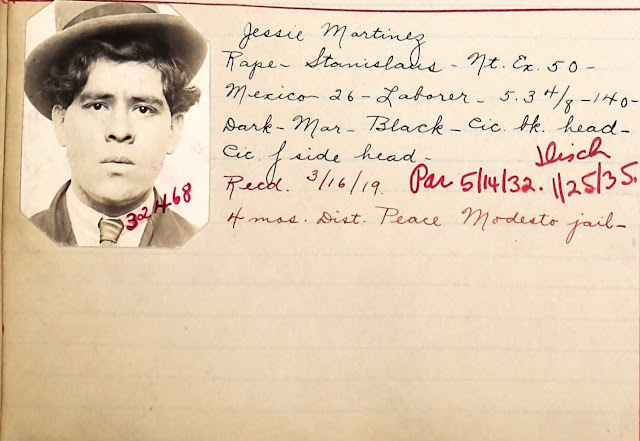 Jessie Martinez
Rape - Stanislaus - Nt. Ex. 50 -
Mexico 26 - Laborer - 5.3 4/8 - 140 -
Dark - Mar - Black - Cic. bk. head -
Cic. f side head -
Disch
Recd. 3/16/19. Par 5/14/32. 1/25/35.
4 mos. Dist. Peace Modesto jail -
32468